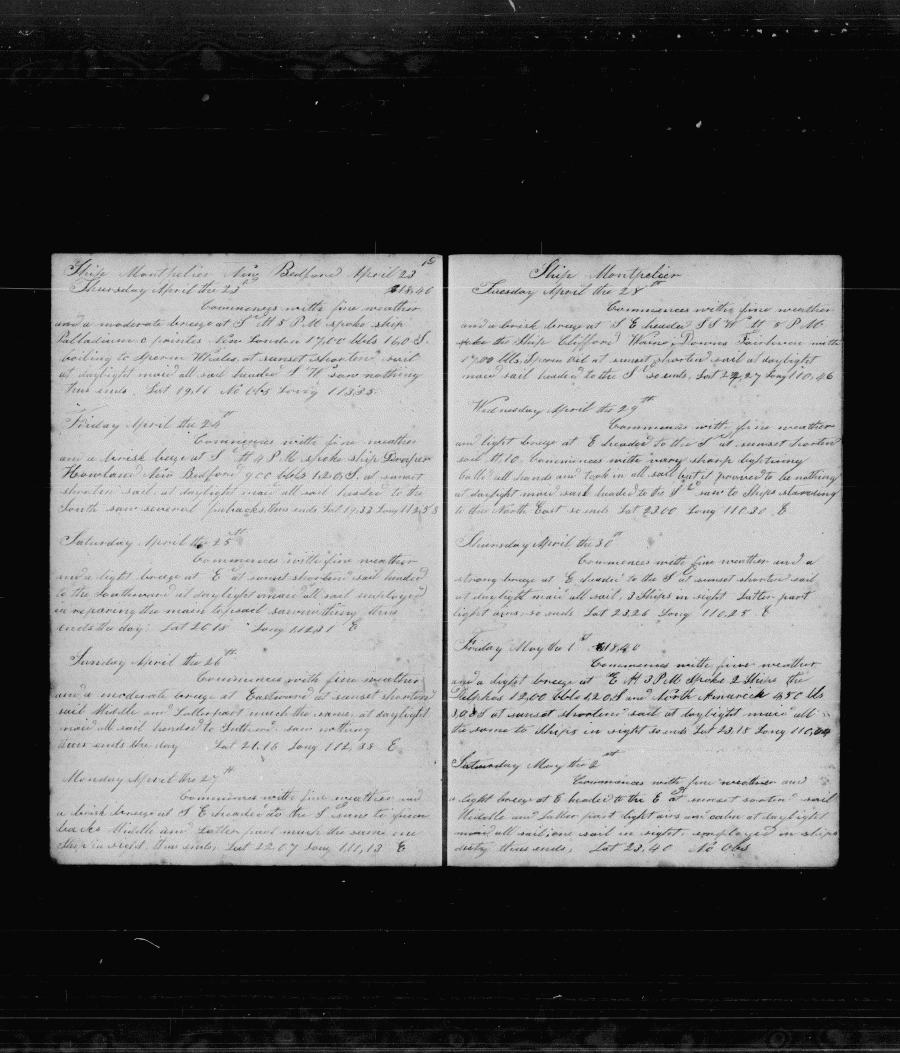 Ship Montpelier New Bedford April 23
Thursday April the 23d 1846
Commences with fine weather
and a moderate breeze at S At 5 PM spoke ship
Palladium of New London 17,00 bbls 160 S.
boiling to Sperm Whales, at sunset shorten sail
at daylight maid all sail headed S W saw nothing
thus ends. Lat 19.11 No Obs Long 113.35
Friday April the 24th
Commences with fine weather
and a brisk breze at S At 4 P M spoke ship Draper
Howland New Bedford 900 bbls 120 S. at sunset
shorten sail. at daylight maid all sail headed to the
South saw several finbacks, thus ends Lat 19.33 Long 112.58
Saturday April the 25th
Commences with fine weather
and a light breeze at E at sunset shorten sail headed
to the Southward at daylight maid all sail employed
in reparing the main topsail saw nothing thus
ends the day. Lat 20.18 Long 112.31 E
Sunday April the 26th
Commences with fine weather
and a moderate breeze at Eastward at sunset shorten
sail Middle and Latter part much the same, at daylight
maid all sail headed to Suther saw nothing
thus ends the day Lat 21.16 Long 112,38 E
Monday April the 27th
Commences with fine weather and
a brisk breeze at S E headed to the S saw to
backs Middle and Latter part much the same one
Ship in sight, thus ends, Lat 22.07 Long 111,13 E
Ship Montpelier
Tuesday April the 28th
Commences with fine weather
and a brisk breeze at S E headed S S W At 5 P M
spoke the Ship Clifford Wains, Downes Fairhaven with
17,00 bbls, Sperm Oil at sunset shorted sail at daylight
maid sail headed to the S so ends, Lat 22,27 Long 110,46
Wednesday April the 29th
Commences with fine weather
and light breeze at E headed to the S at sunset shorten
sail. At 10 Commences with vary sharp lightning
calld all hands and took in all sail but it proved to be nothing
at daylight maid sail headed to the S saw to Ships standing
to the North East so ends Lat 23.00 Long 110.30 E
Thursday April the 30th
Commences with fine weather and a
strong breeze at E headed to the S at sunset shorten sail
at daylight maid all sail, 3 Ships in sight Latter part
light airs, so ends Lat 23.26 Long 110,25 E
Friday May the 1st 1846
Commences with fine weather
and a light breeze at E At 3 P.M Spoke 2 Ships the
Delphos 12,00 bbls 120 S and North America 450 bls
300 S at sunset shorten sail at daylight maid all
the same to Ships in sight so ends Lat 23.18 Long 110,04
Saturday May the 2nd
Commences with fine weather and
a light breeze at E headed to the E at sunset sorten sail
Middle and Latter part light airs and calm at daylight
maid all sail one sail in sight, employed in ships
duty thus ends, Lat 23,40 No Obs